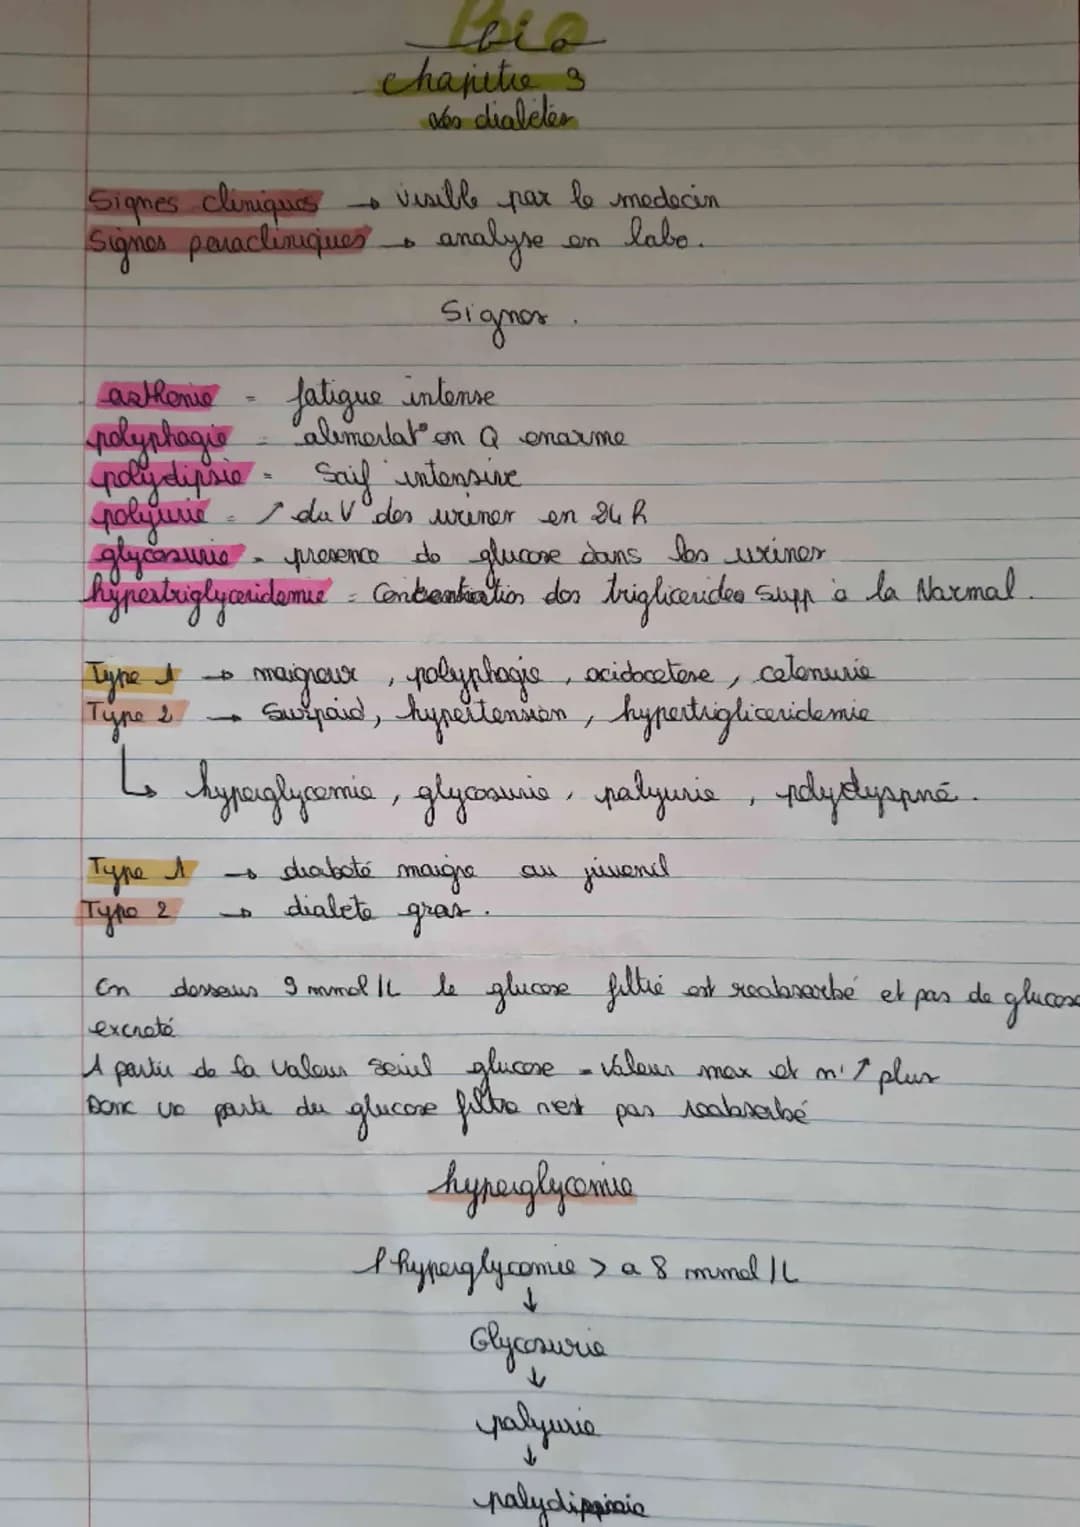 Bio
bio
chapitre 3
les diabètes
Signes cliniques → visible par le medecin
Signes paracliniques → analyse en labo.
Signes.
asthenie = fatigue intense
polyphagie = alimentat° en Q enorme
polydipsie = Soif intensive
polyurie = ↗ du V des urines en 24 h
glycosurie = presence de glucose dans les urines
hypertriglyceridemie = Concentration des triglicerides Supp a la Normal.
Type 1 → maigreur, polyphagie, acidocetose, cetonurie
Type 2 → Surpoid, hypertension, hypertrigliceridemie
↳ hyperglycemie, glycosurie, polyurie, polydyspné.
Type 1 → diabeté maigre ou juvenil
Type 2 → diabete gras.
En dessous 9 mmol/L le glucose filtré est reabsorbé et pas de glucose
excreté
A partir de la valeur seuil glucose = Valeur max et n'↗ plus
Donc une partie du glucose filtré n'est pas reabsorbé
hyperglycemie
l'hyperglycemie > a 8 mmol/L
↓
Glycosurie
↓
polyurie
↓